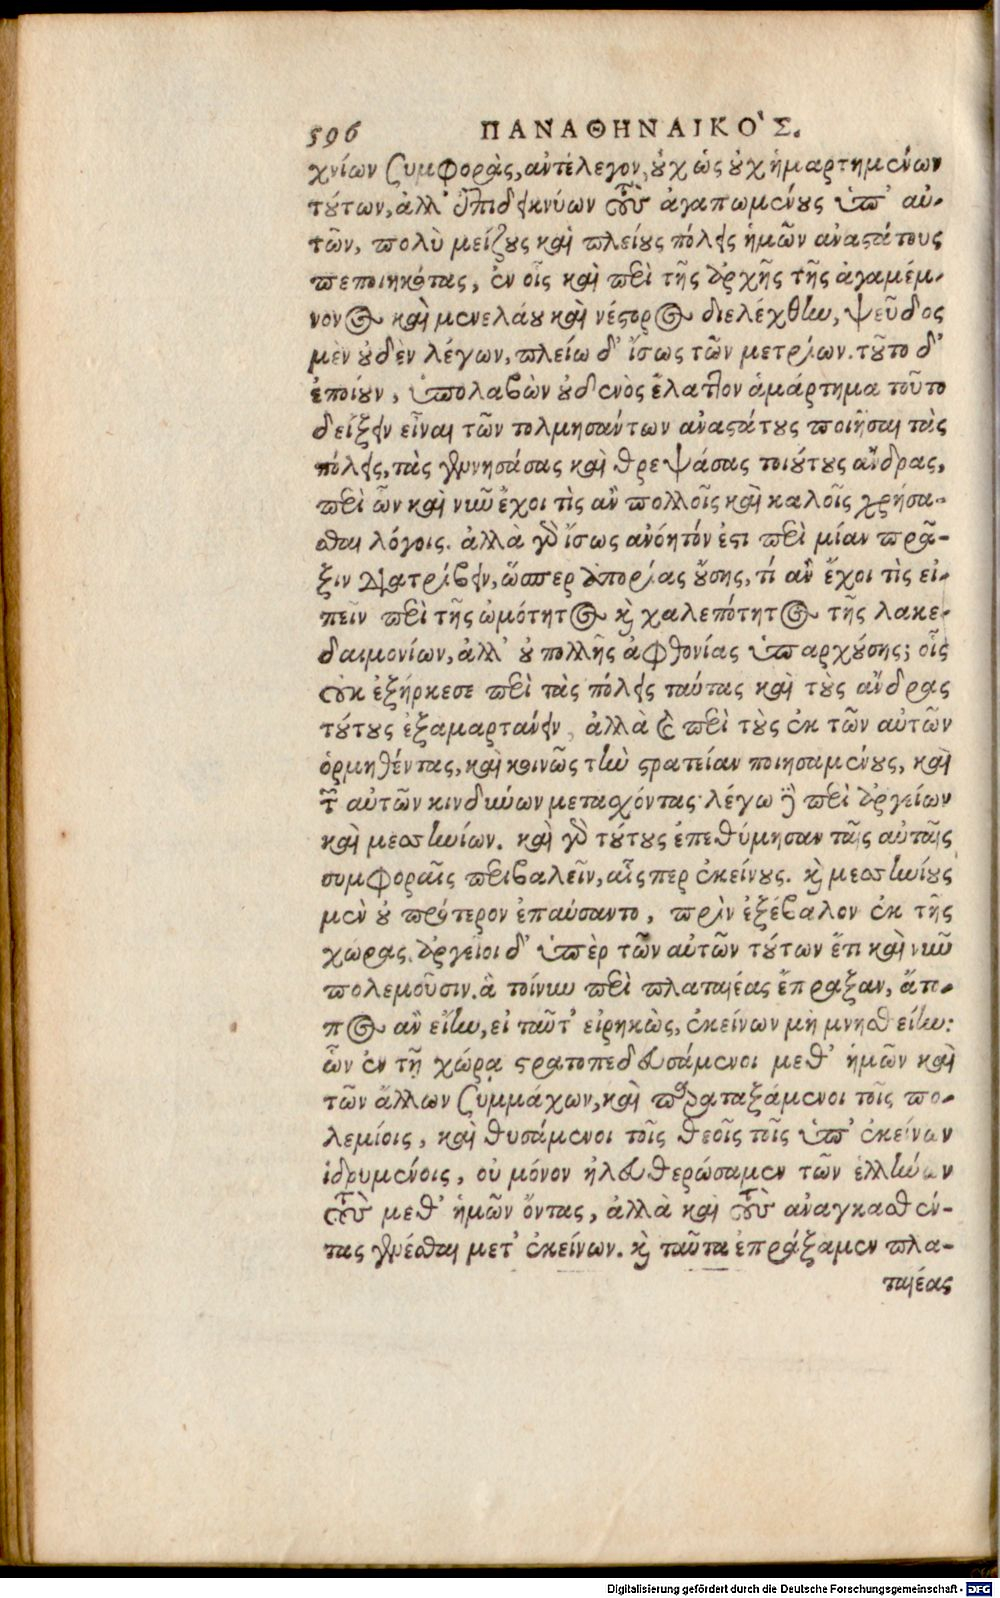 596 ΠΑΝΑΘΗΝΑΙΚΟ'Σ.
χνίων συμφορὰς, ἀντέλεγον, οὐχ ὡς οὐχ ἡμαρτημένων
τούτων, ἀλλ' ἐπιδεικνύων τοὺς ἀγαπωμένους ὑπ' αὐ-
τῶν, πολὺ μείζους καὶ πλείους πόλεις ἡμῶν ἀναστάτους
πεποιηκότας, ἐν οἷς καὶ περὶ τῆς ἀρετῆς τῆς ἀγαμέμ-
νονος καὶ μενελάου καὶ νέστορος διελέχθην, ψεῦδος
μὲν οὐδὲν λέγων, πλείω δ' ἴσως τῶν μετρίων. τοῦτο δ'
ἐποίουν, ὑπολαβὼν οὐδενὸς ἔλαττον ἁμάρτημα τοῦτο
δείξειν εἶναι τῶν τολμησάντων ἀναστάτους ποιῆσαι τὰς
πόλεις, τὰς γεννησάσας καὶ θρεψάσας τοιούτους ἄνδρας,
περὶ ὧν καὶ νῦν ἔχοι τὶς ἂν πολλοῖς καὶ καλοῖς χρήσα-
σθαι λόγοις. ἀλλὰ γὰρ ἴσως ἀνόητόν ἐστι περὶ μίαν πρᾶ-
ξιν διατρίβειν, ὥσπερ ἀπορίας οὔσης, τί ἂν ἔχοι τὶς εἰ-
πεῖν περὶ τῆς ὠμότητος καὶ χαλεπότητος τῆς λακε-
δαιμονίων, ἀλλ' οὐ πολλῆς ἀφθονίας ὑπαρχούσης; οἷς
οὐκ ἐξήρκεσε περὶ τὰς πόλεις ταύτας καὶ τοὺς ἄνδρας
τούτους ἐξαμαρτάνειν, ἀλλὰ καὶ περὶ τοὺς ἐκ τῶν αὐτῶν
ὁρμηθέντας, καὶ κοινῶς τὴν στρατείαν ποιησαμένους, καὶ
τῶν αὐτῶν κινδύνων μετασχόντας· λέγω δὲ περὶ ἀργείων
καὶ μεσσηνίων. καὶ γὰρ τούτους ἐπεθύμησαν ταῖς αὐταῖς
συμφοραῖς περιβαλεῖν, αἷς περ ἐκείνους. καὶ μεσσηνίους
μὲν οὐ πρότερον ἐπαύσαντο, πρὶν ἐξέβαλον ἐκ τῆς
χώρας. ἀργεῖοι δ' ὑπὲρ τῶν αὐτῶν τούτων ἔτι καὶ νῦν
πολεμοῦσιν. ἃ τοίνυν περὶ πλαταιέας ἔπραξαν, ἄτο-
πος ἂν εἴην, εἰ ταῦτ' εἰρηκὼς, ἐκείνων μὴ μνησθείην:
ὧν ἐν τῇ χώρᾳ στρατοπεδευσάμενοι μεθ' ἡμῶν καὶ
τῶν ἄλλων συμμάχων, καὶ παραταξάμενοι τοῖς πο-
λεμίοις, καὶ θυσάμενοι τοῖς θεοῖς τοῖς ὑπ' ἐκείνων
ἱδρυμένοις, οὐ μόνον ἠλευθερώσαμεν τῶν ἑλλήνων
τοὺς μεθ' ἡμῶν ὄντας, ἀλλὰ καὶ τοὺς ἀναγκασθέν-
τας γενέσθαι μετ' ἐκείνων. καὶ ταῦτα ἐπράξαμεν πλα-
ταιέας
Digitalisierung gefördert durch die Deutsche Forschungsgemeinschaft - DFG